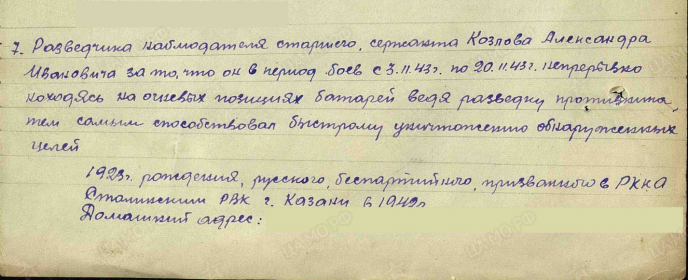 7. Разведчика наблюдателя старшего, сержанта Козлова Александра
Ивановича за то, что он в период боев с 3.11.43г. по 20.11.43г. непрерывно
находясь на огневых позициях батарей ведя разведку противника,
тем самым способствовал быстрому уничтожению обнаруженных
целей
1923г. рождения, русского, беспартийного, призванного в РККА
Сталинским РВК г. Казани в 1942г
Домашний адрес: